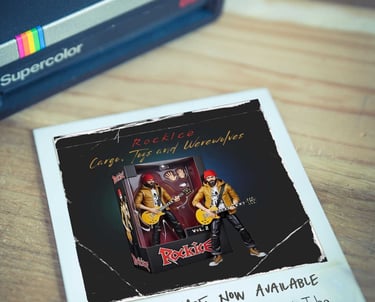 Supercolor
RockIce
Cargo, Toys and Werewolves
RockIce
VOL. 2
RockIce
NOW AVAILABLE
The